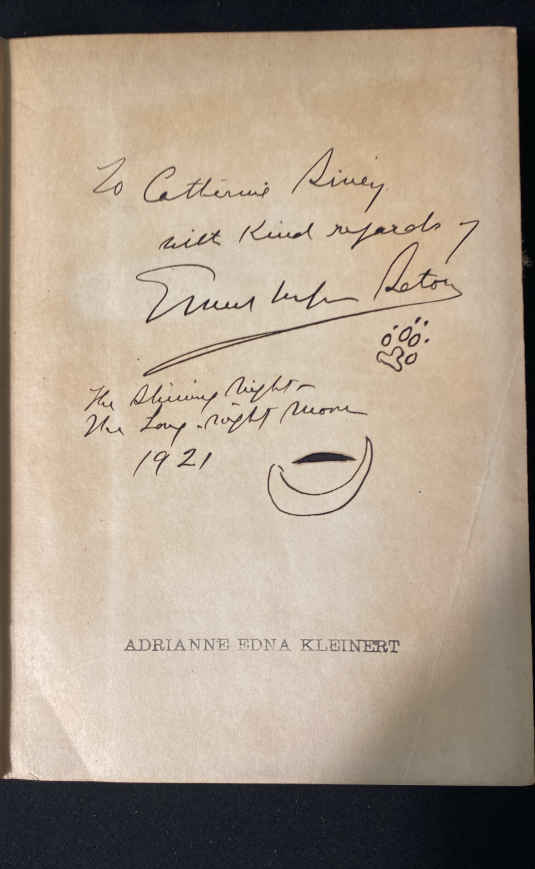 To Catherine
with Kind regards of
Ernest Thompson Seton
The Shining Night
The Long-night Moon
1921
ADRIANNE EDNA KLEINERT